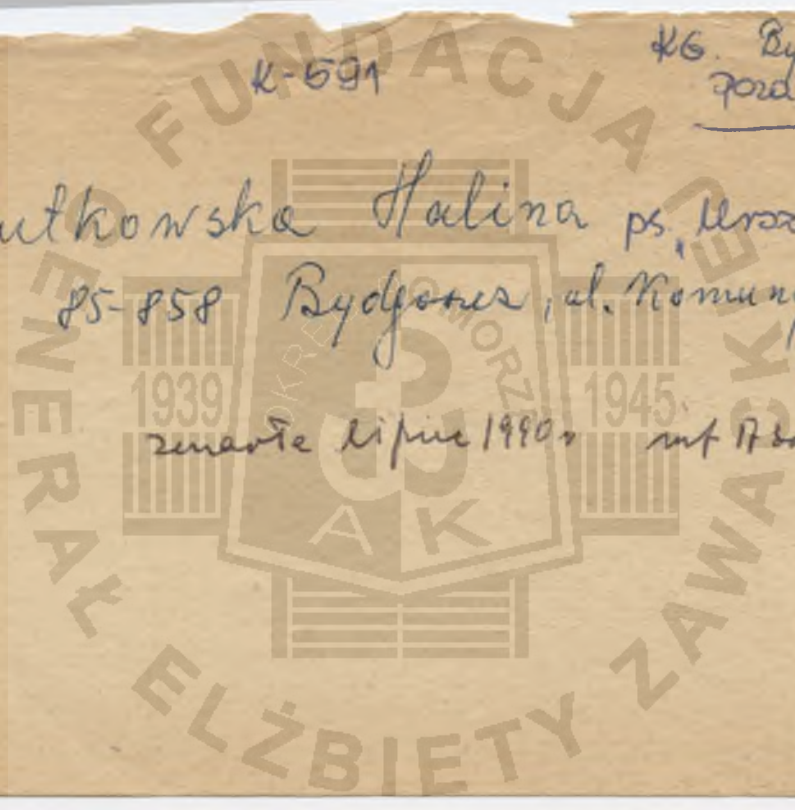 K-591
KG. By
poza
utkowska Halina ps. „Ursz
85-858 Bydgoszcz, ul. Komun
zmarła lipiec 1990r inf
FUNDACJA GENERAŁ ELŻBIETY ZAWACKIEJ
OKRĘG POMORZE
1939 1945
AK